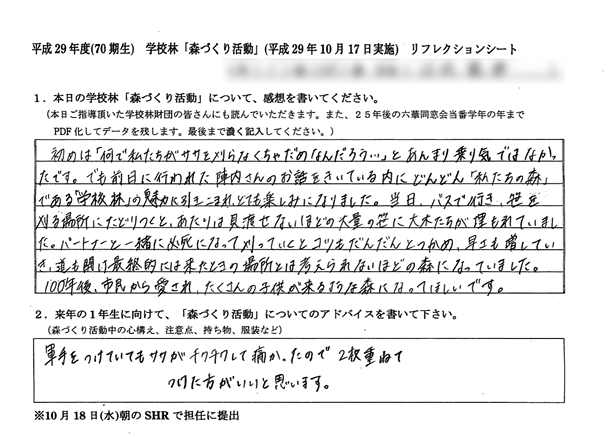 平成29年度(70期生)　学校林「森づくり活動」(平成29年10月17日実施)　リフレクションシート
1．本日の学校林「森づくり活動」について、感想を書いてください。
(本日ご指導頂いた学校林財団の皆さんにも読んでいただきます。また、25年後の六華同窓会当番学年の年まで
PDF化してデータを残します。最後まで濃く記入してください。)
初めは「何で私たちがササを刈らなくちゃだめなんだろう…」とあんまり乗り気ではなかっ
たです。でも前日に行われた陣内さんのお話をきいている内にどんどん「私たちの森」
である「学校林」の魅力に引きこまれ、とても楽しみになりました。当日、バスで行き、笹を
刈る場所にたどりつくと、あたりは見渡せないほどの大量の笹に大木たちが埋もれていまし
た。パートナーと一緒に必死になって刈っていくとコツもだんだんとつかめ、早さも増してい
き、道も開け最終的には来たときの場所とは考えられないほどの森になっていました。
100年後、市民から愛され、たくさんの子供が来るような森になってほしいです。
2．来年の1年生に向けて、「森づくり活動」についてのアドバイスを書いて下さい。
(森づくり活動中の心構え、注意点、持ち物、服装など)
軍手をつけていてもササがチクチクして痛かったので2枚重ねて
つけた方がいいと思います。
※10月18日(水)朝のSHRで担任に提出